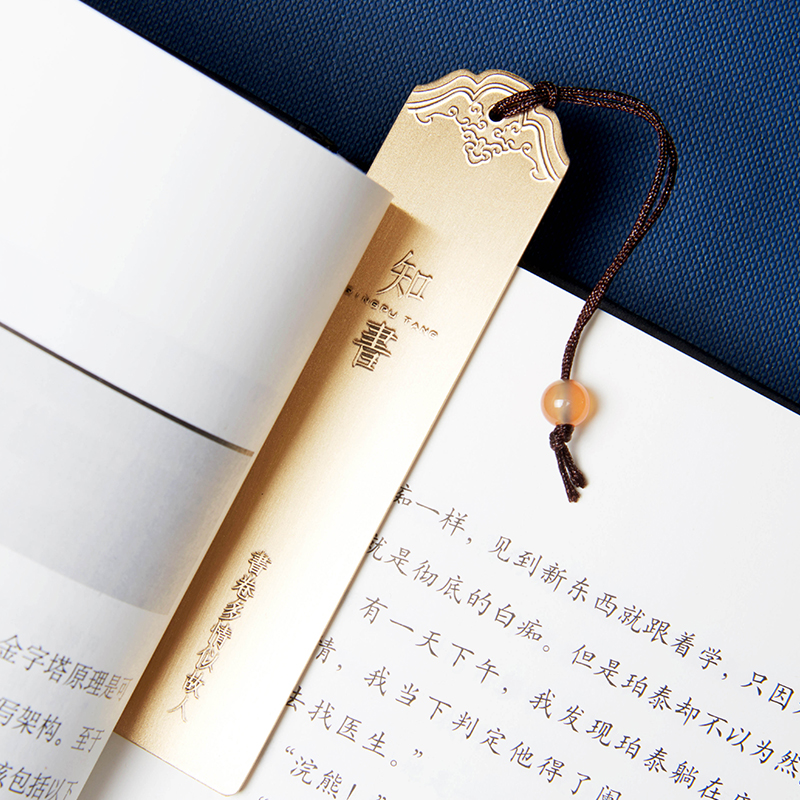 金字塔原理是可
写架构。至于
该包括以下
知
書
書卷多情似故人
痴一样，见到新东西就跟着学，只因
就是彻底的白痴。但是珀泰却不以为然
有一天下午，我发现珀泰躺在
情，我当下判定他得了阑
去找医生。”
“浣熊！”